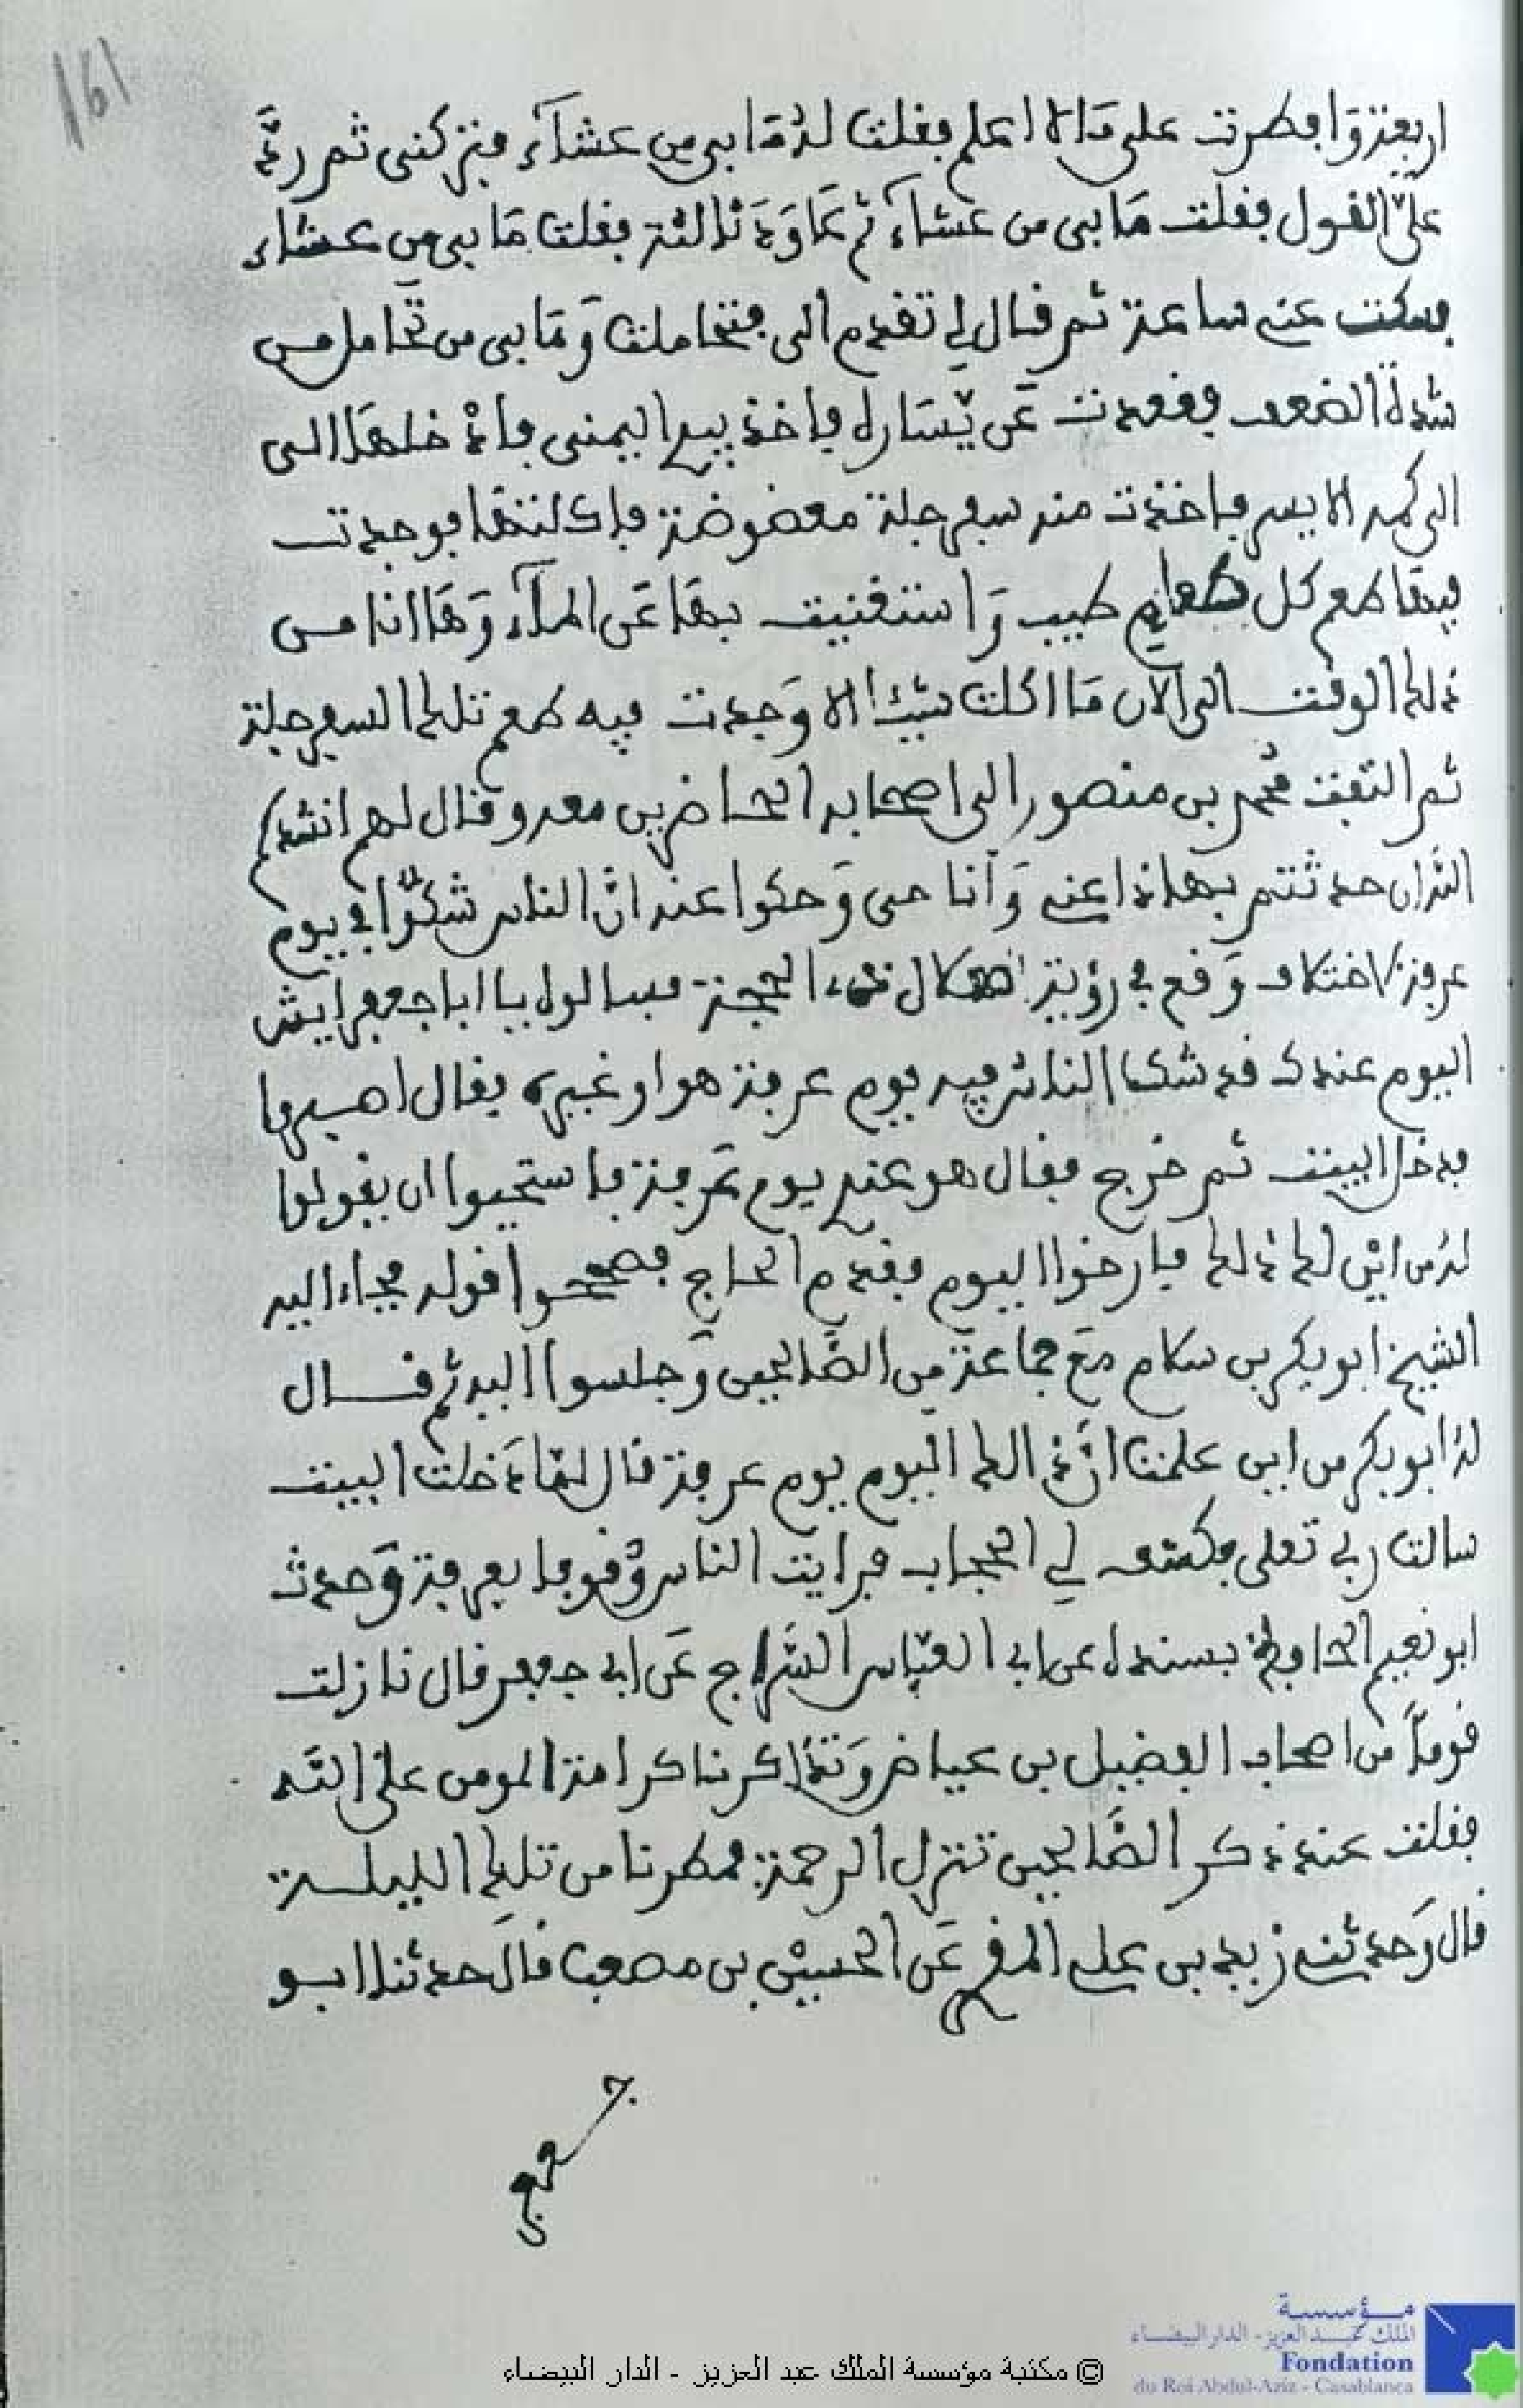 161
اربعة وافطرت على ما لا اعلم فقلت له ما بي من عشاء فتركني ثم ردّ
عليّ القول فقلت ما بي من عشاء ثم عاود ثالثة فقلت ما بي من عشاء
فسكت عني ساعة ثم قال لي تقدم الي فتحاملت وما بي من تحامل من
شدة الضعف فقعدت عن يساره فاخذ بيدي اليمنى فادخلها الى
الى كمه الايسر فاخذت منه سفرجلة معضوضة فاكلتها فوجدت
فيها طعم كل طعام طيب واستغنيت بها عن الماء وها انا من
ذلك الوقت الى الان ما اكلت شيئا الا وجدت فيه طعم تلك السفرجلة
ثم التفت محمد بن منصور الى اصحابه الحاضرين معه وقال لهم انشدكم
الله ان حدثتم بهاذا عني وانا حي وحكوا عنه انّ الناس شكّوا في يوم
عرفة لاختلاف وقع في رؤية هلال ذي الحجة فسالوه يا ابا جعفر ايش
اليوم عندك قد شك الناس فيه يوم عرفة هو او غيره فقال اصبروا
فدخل البيت ثم خرج فقال هو عندي يوم عرفة فاستحيوا ان يقولوا
له من اين لك ذلك فارخوا اليوم فقدم الحاج فصححوا قوله فجاء اليه
الشيخ ابو بكر بن سلام مع جماعة من الصالحين وجلسوا اليه ثم قال
له ابو بكر من اين علمت انّ ذالك اليوم يوم عرفة قال لما دخلت البيت
سالت ربي تعلى فكشف لي الحجاب فرايت الناس وقوفا بعرفة وحدث
ابو نعيم الحافظ بسنده عن ابي العباس السّراج عن ابي جعفر قال نازلت
قوما من اصحاب الفضيل بن عياض وتذاكرنا كرامة المومن على الله
فقلت عند ذكر الصالحين تنزل الرحمة فمطرنا من تلك الليلة
قال وحدثني زيد بن علي المقري عن الحسين بن مصعب قال حدثنا ابو
© مكتبة مؤسسة الملك عبد العزيز - الدار البيضاء
مؤسسة
الملك عبد العزيز - الدار البيضاء
Fondation
du Roi Abdul-Aziz - Casablanca